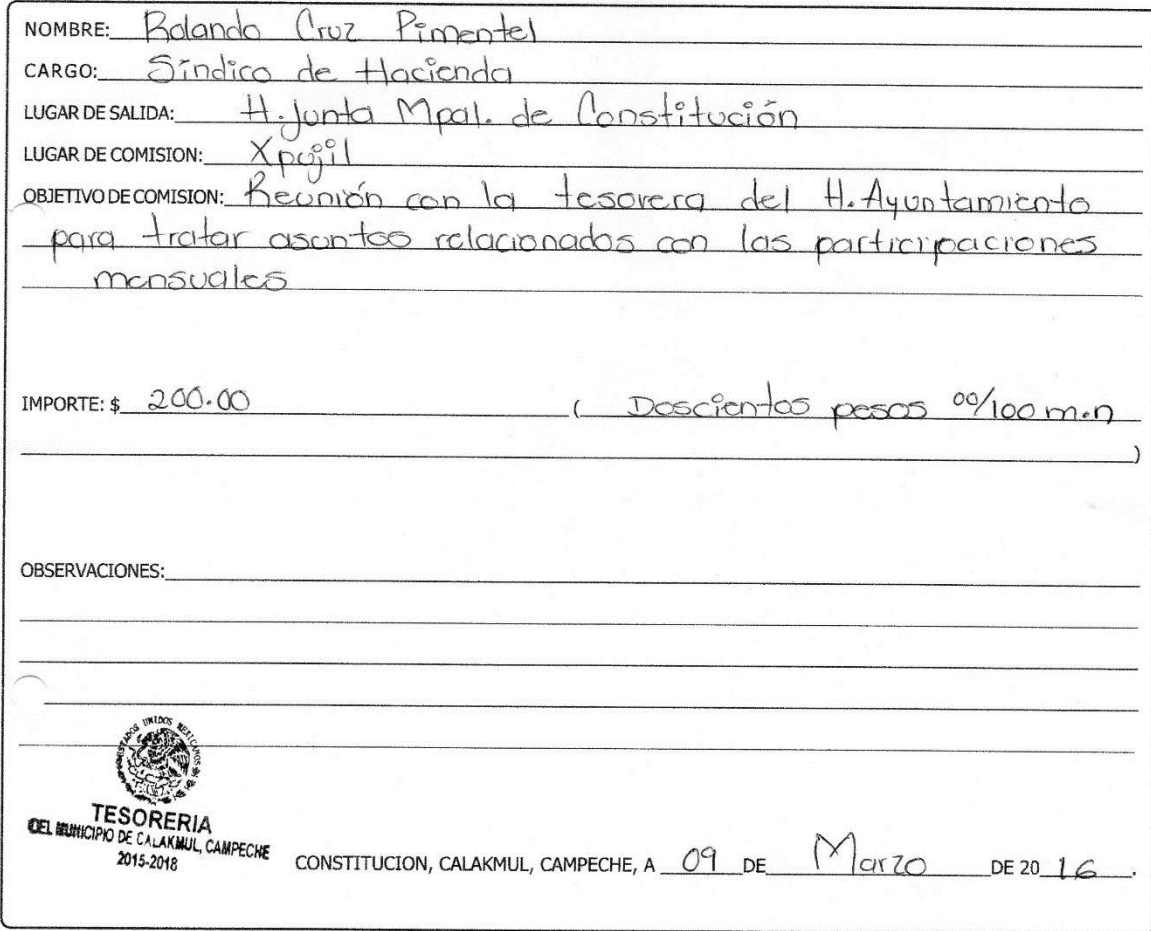 NOMBRE: Rolando Cruz Pimentel
CARGO: Síndico de Hacienda
LUGAR DE SALIDA: H. Junta Mpal. de Constitución
LUGAR DE COMISION: Xpujil
OBJETIVO DE COMISION: Reunión con la tesorera del H. Ayuntamiento
para tratar asuntos relacionados con las participaciones
mensuales
IMPORTE: $ 200.00 ( Doscientos pesos 00/100 m.n
)
OBSERVACIONES:
ESTADOS UNIDOS MEXICANOS
TESORERIA
DEL MUNICIPIO DE CALAKMUL, CAMPECHE
2015-2018
CONSTITUCION, CALAKMUL, CAMPECHE, A 09 DE Marzo DE 20 16.